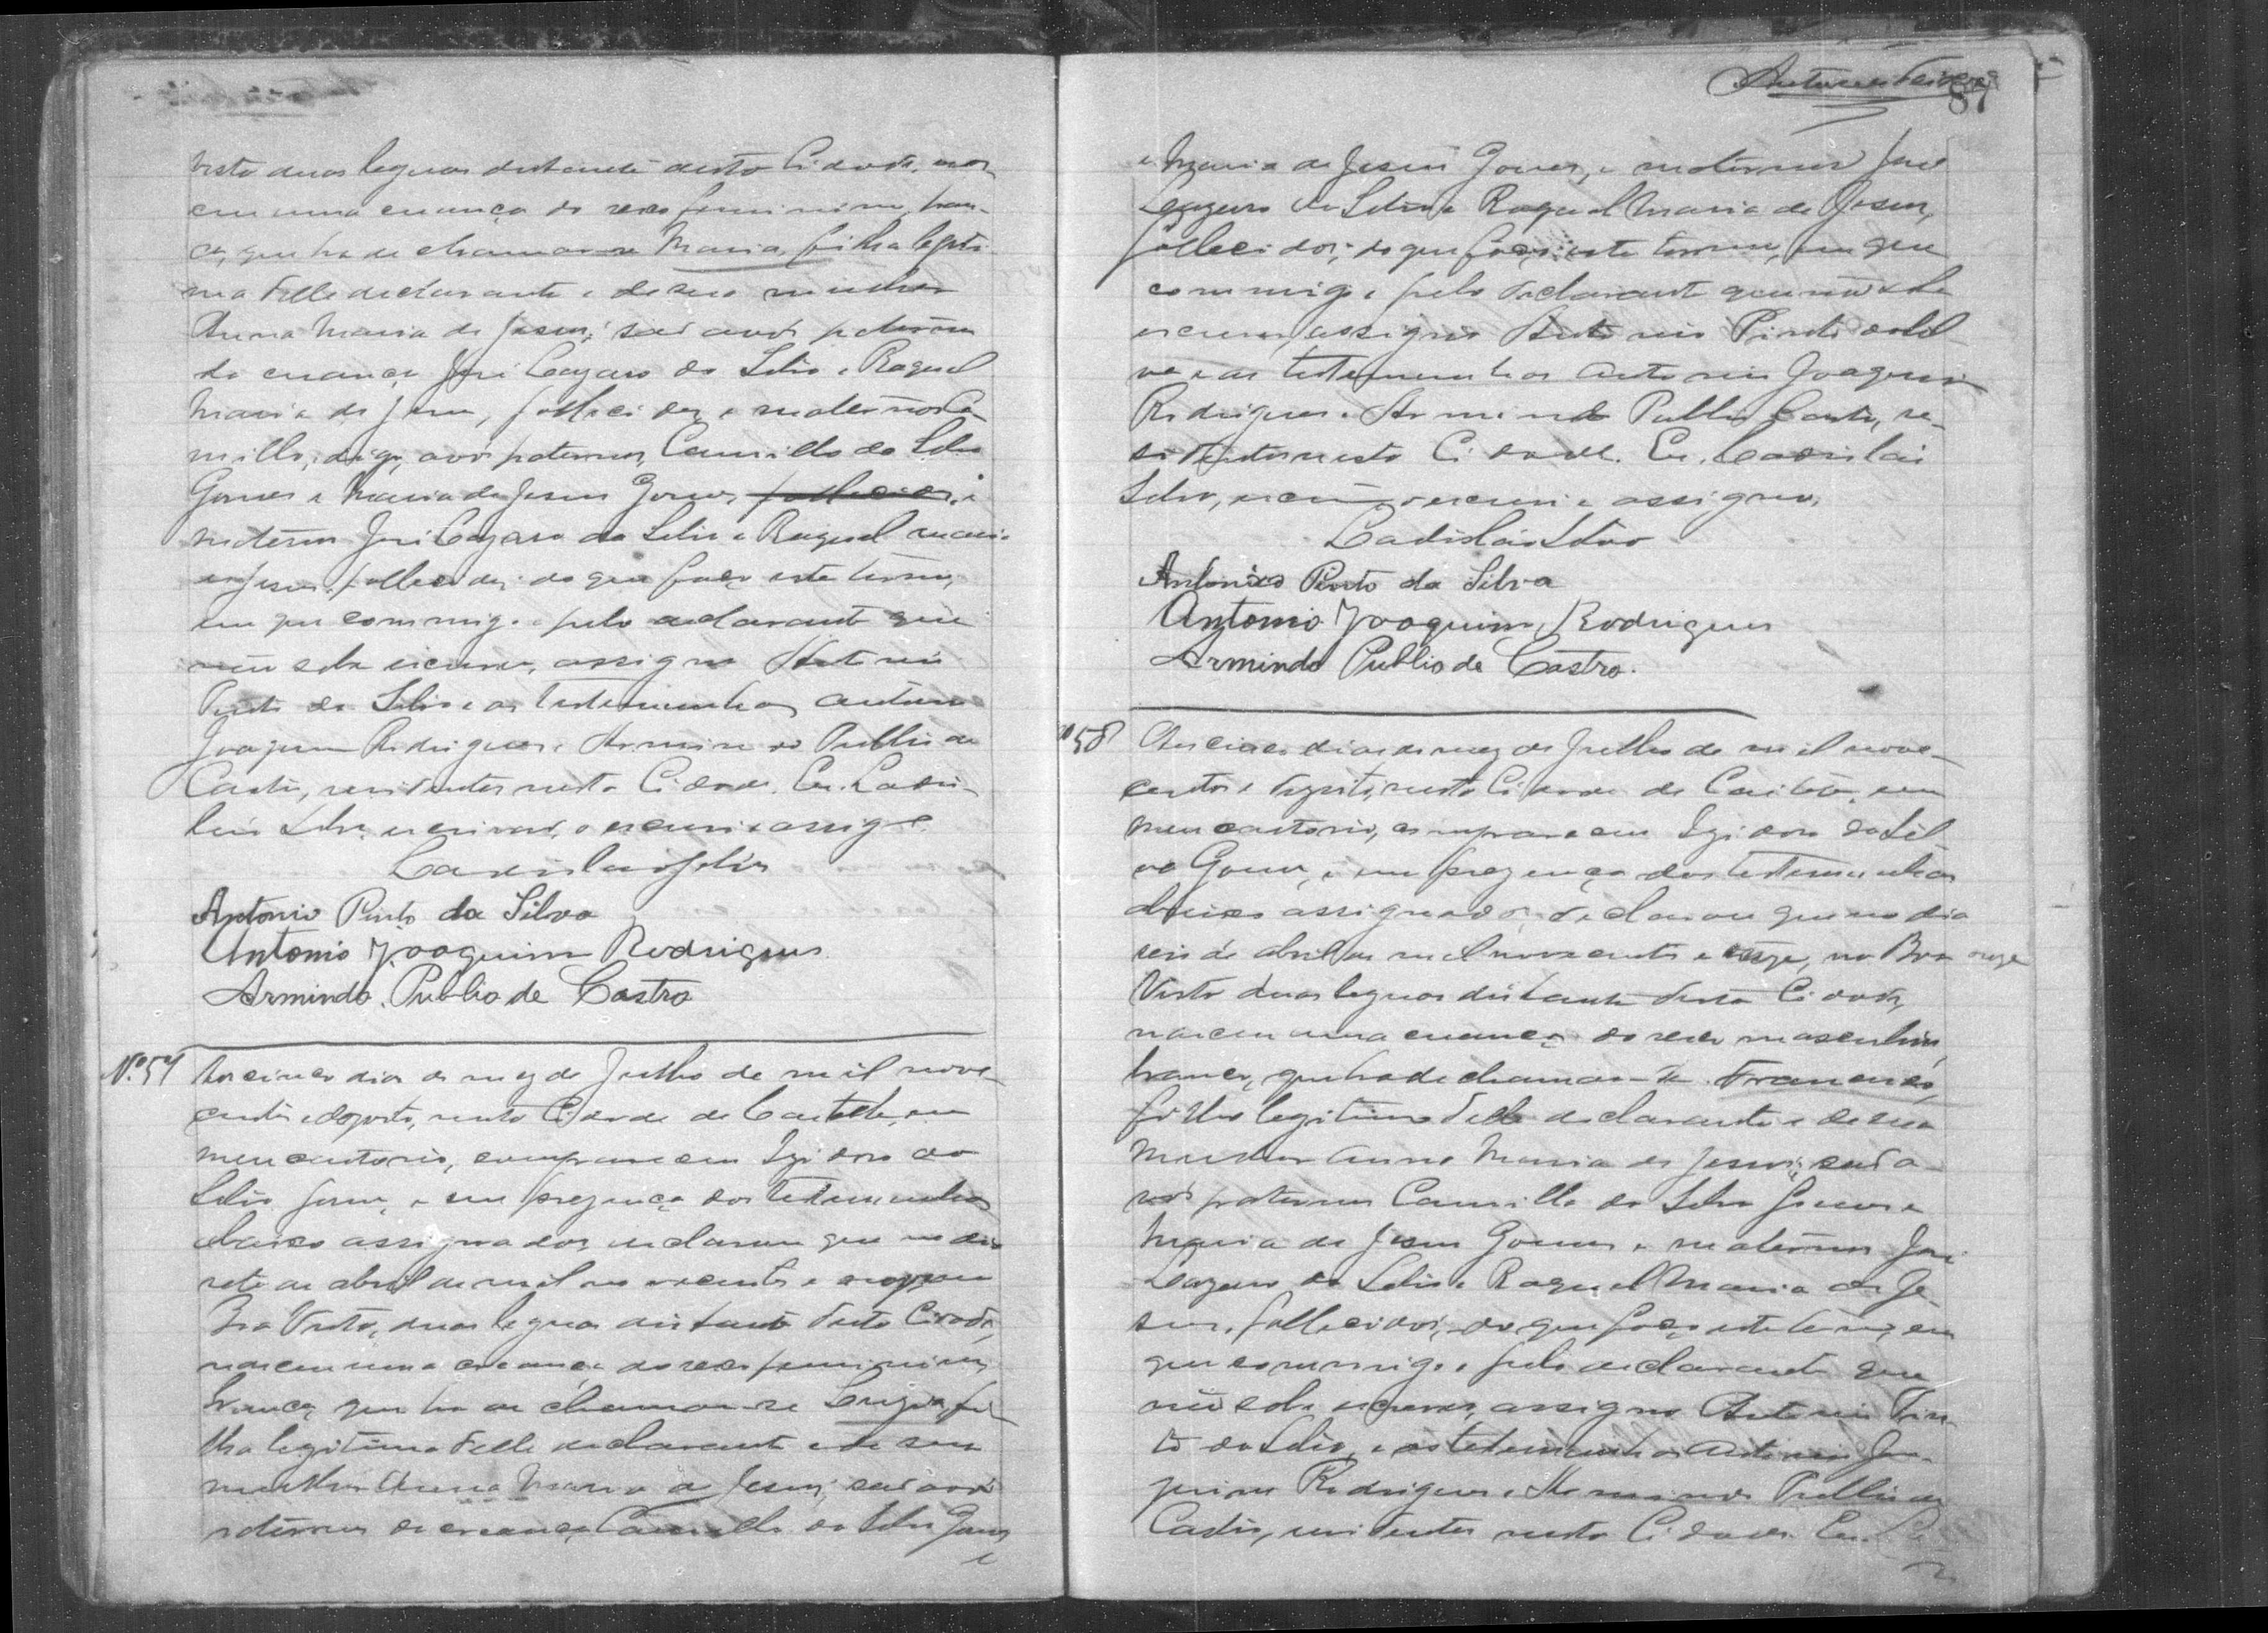 Vista duas leguas distante desta Cidade, nas
ceu uma creança do sexo feminino, bran-
ca, que ha de chamar-se Maria, filha legiti-
ma delle declarante e de sua mulher
Anna Maria de Jesus; são avós paternos
da creança José Lazaro da Silva e Raquel
Maria de Jesus, fallecidos, e maternos Ca
millo, digo, avós paternos, Camillo da Silva
Gomes e Maria de Jesus Gomes, fallecidos, e
maternos José Lazaro da Silva e Raquel Maria
de Jesus, fallecidos; do que faço este termo,
em que commigo e pelo declarante que
não sabe escrever, assigna Antonio
Pinto da Silva e as testemunhas Antonio
Joaquim Rodrigues e Armindo Publio de
Castro, residentes nesta Cidade. Eu, Ladis-
láu Silva, escrivão, o escrevi e assigno.
Ladisláu Silva
Antonio Pinto da Silva
Antonio Joaquim Rodrigues
Armindo Publio de Castro
Nº 57 Aos cinco dias do mez de Julho de mil nove-
centos e dezoito, nesta Cidade de Caeteté, em
meu cartorio, compareceu Izidoro da
Silva Gomes, e em presença das testemunhas
abaixo assignadas, declarou que no dia
sete de abril de mil novecentos e
Boa Vista, duas leguas distante desta Cidade,
nasceu uma creança do sexo feminino,
branca, que ha de chamar-se Luzia, fi
lha legitima delle declarante e de sua
mulher Anna Maria de Jesus; são avós
paternos da creança Camillo da Silva Gomes
e
87
e Maria de Jesus Gomes, e maternos José
Lazaro da Silva e Raquel Maria de Jesus,
fallecidos; do que faço este termo, em que
commigo e pelo declarante que não sabe
escrever, assigna Antonio Pinto da Sil
va e as testemunhas Antonio Joaquim
Rodrigues e Armindo Publio Castro, re-
sidentes nesta Cidade. Eu, Ladisláu
Silva, escrivão o escrevi e assigno.
Ladisláu Silva
Antonio Pinto da Silva
Antonio Joaquim Rodrigues
Armindo Publio de Castro.
Nº 58 Aos cinco dias do mez de Julho de mil nove-
centos e dezoito, nesta Cidade de Caeteté, em
meu cartorio, compareceu Izidoro da Sil
va Gomes, e em presença das testemunhas
abaixo assignadas, declarou que no dia
seis de abril de mil novecentos e onze, na Boa onze
Vista duas leguas distante desta Cidade,
nasceu uma creança do sexo masculino,
branca, que ha de chamar-se Francisco,
filho legitimo delle declarante e de sua
mulher Anna Maria de Jesus; são a-
vós paternos Camillo da Silva Gomes e
Maria de Jesus Gomes e maternos José
Lazaro da Silva e Raquel Maria de Je-
sus, fallecidos; do que faço este termo, em
que commigo e pelo declarante que
não sabe escrever, assigna Antonio Pin-
to da Silva, e as testemunhas Antonio Joa-
quim Rodrigues e Armindo Publio de
Castro, residentes nesta Cidade. Eu, La